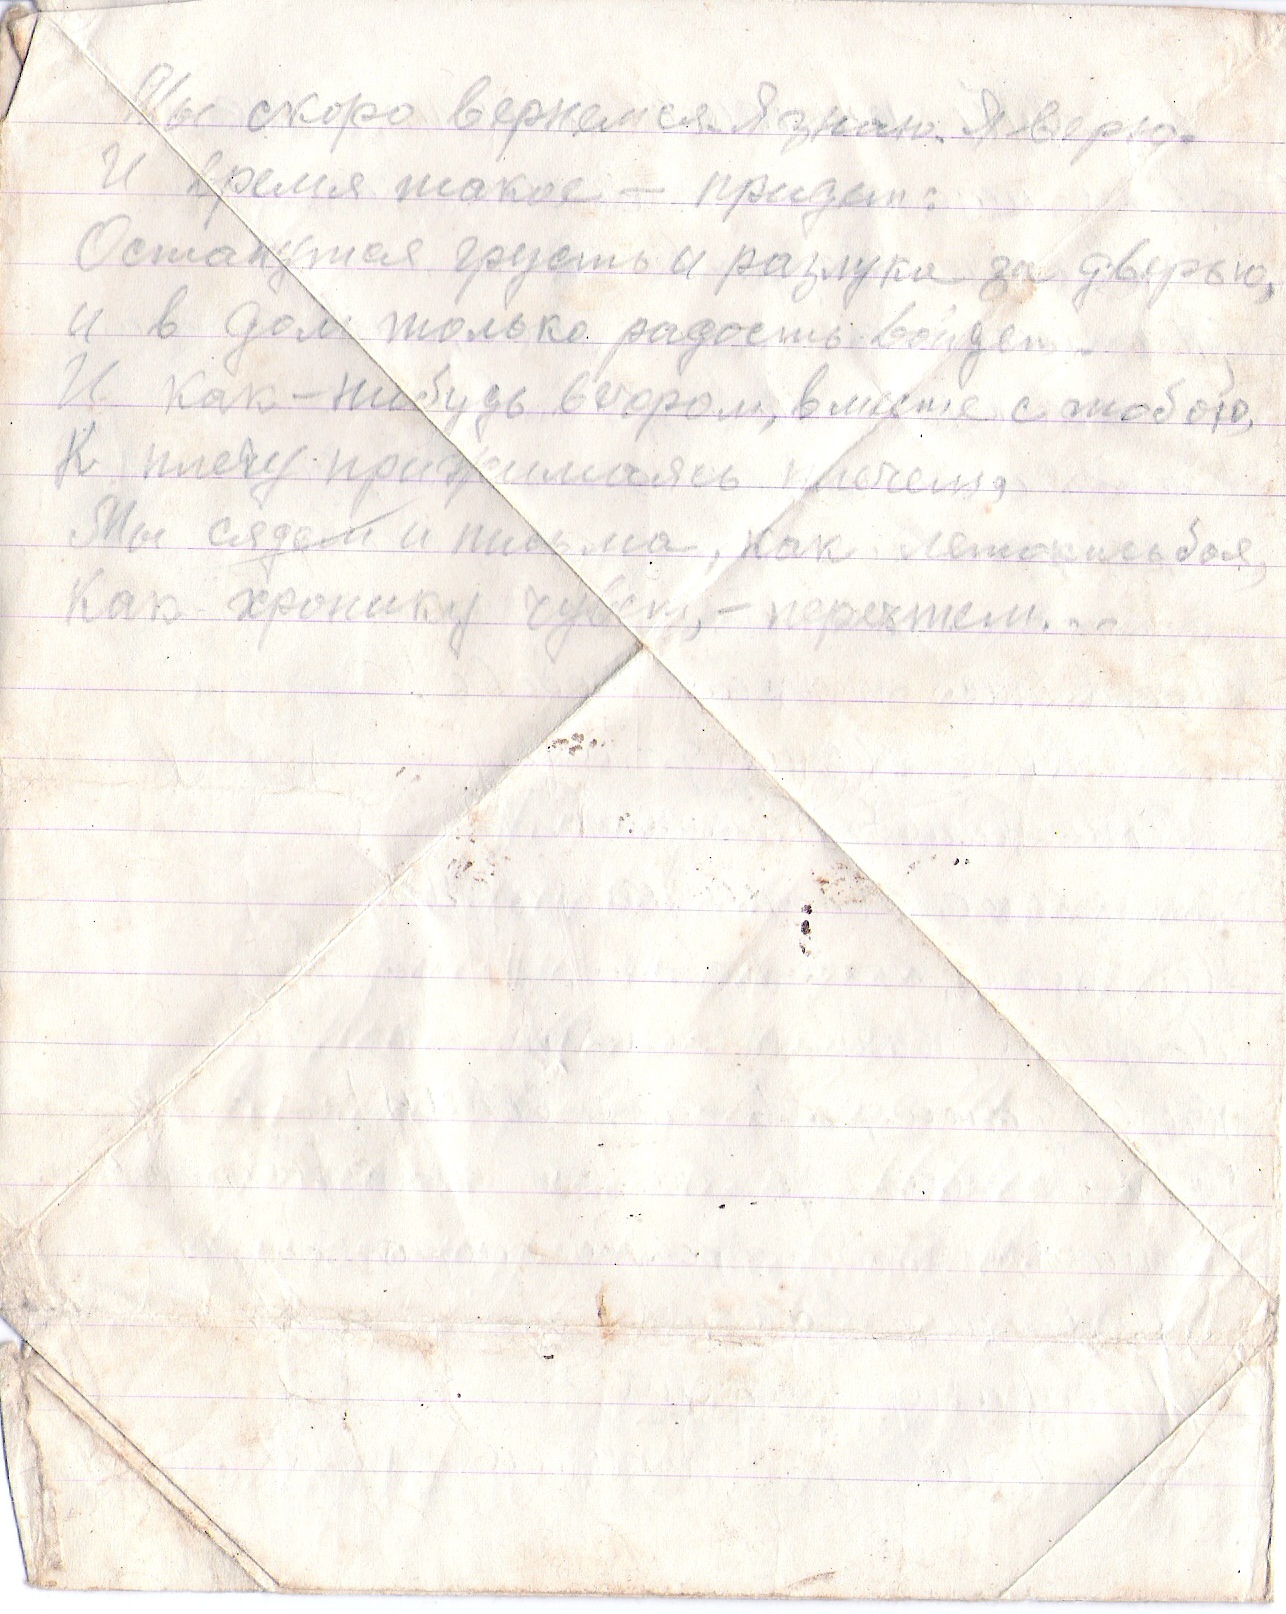 Мы скоро вернемся. Я знаю. Я верю.
И время такое — придет:
Останутся грусть и разлука за дверью,
и в дом только радость войдет.
И как-нибудь вечером, вместе с тобою,
К плечу прижимаясь плечом,
Мы сядем и письма, как летопись боя,
Как хронику чувств, — перечтем...